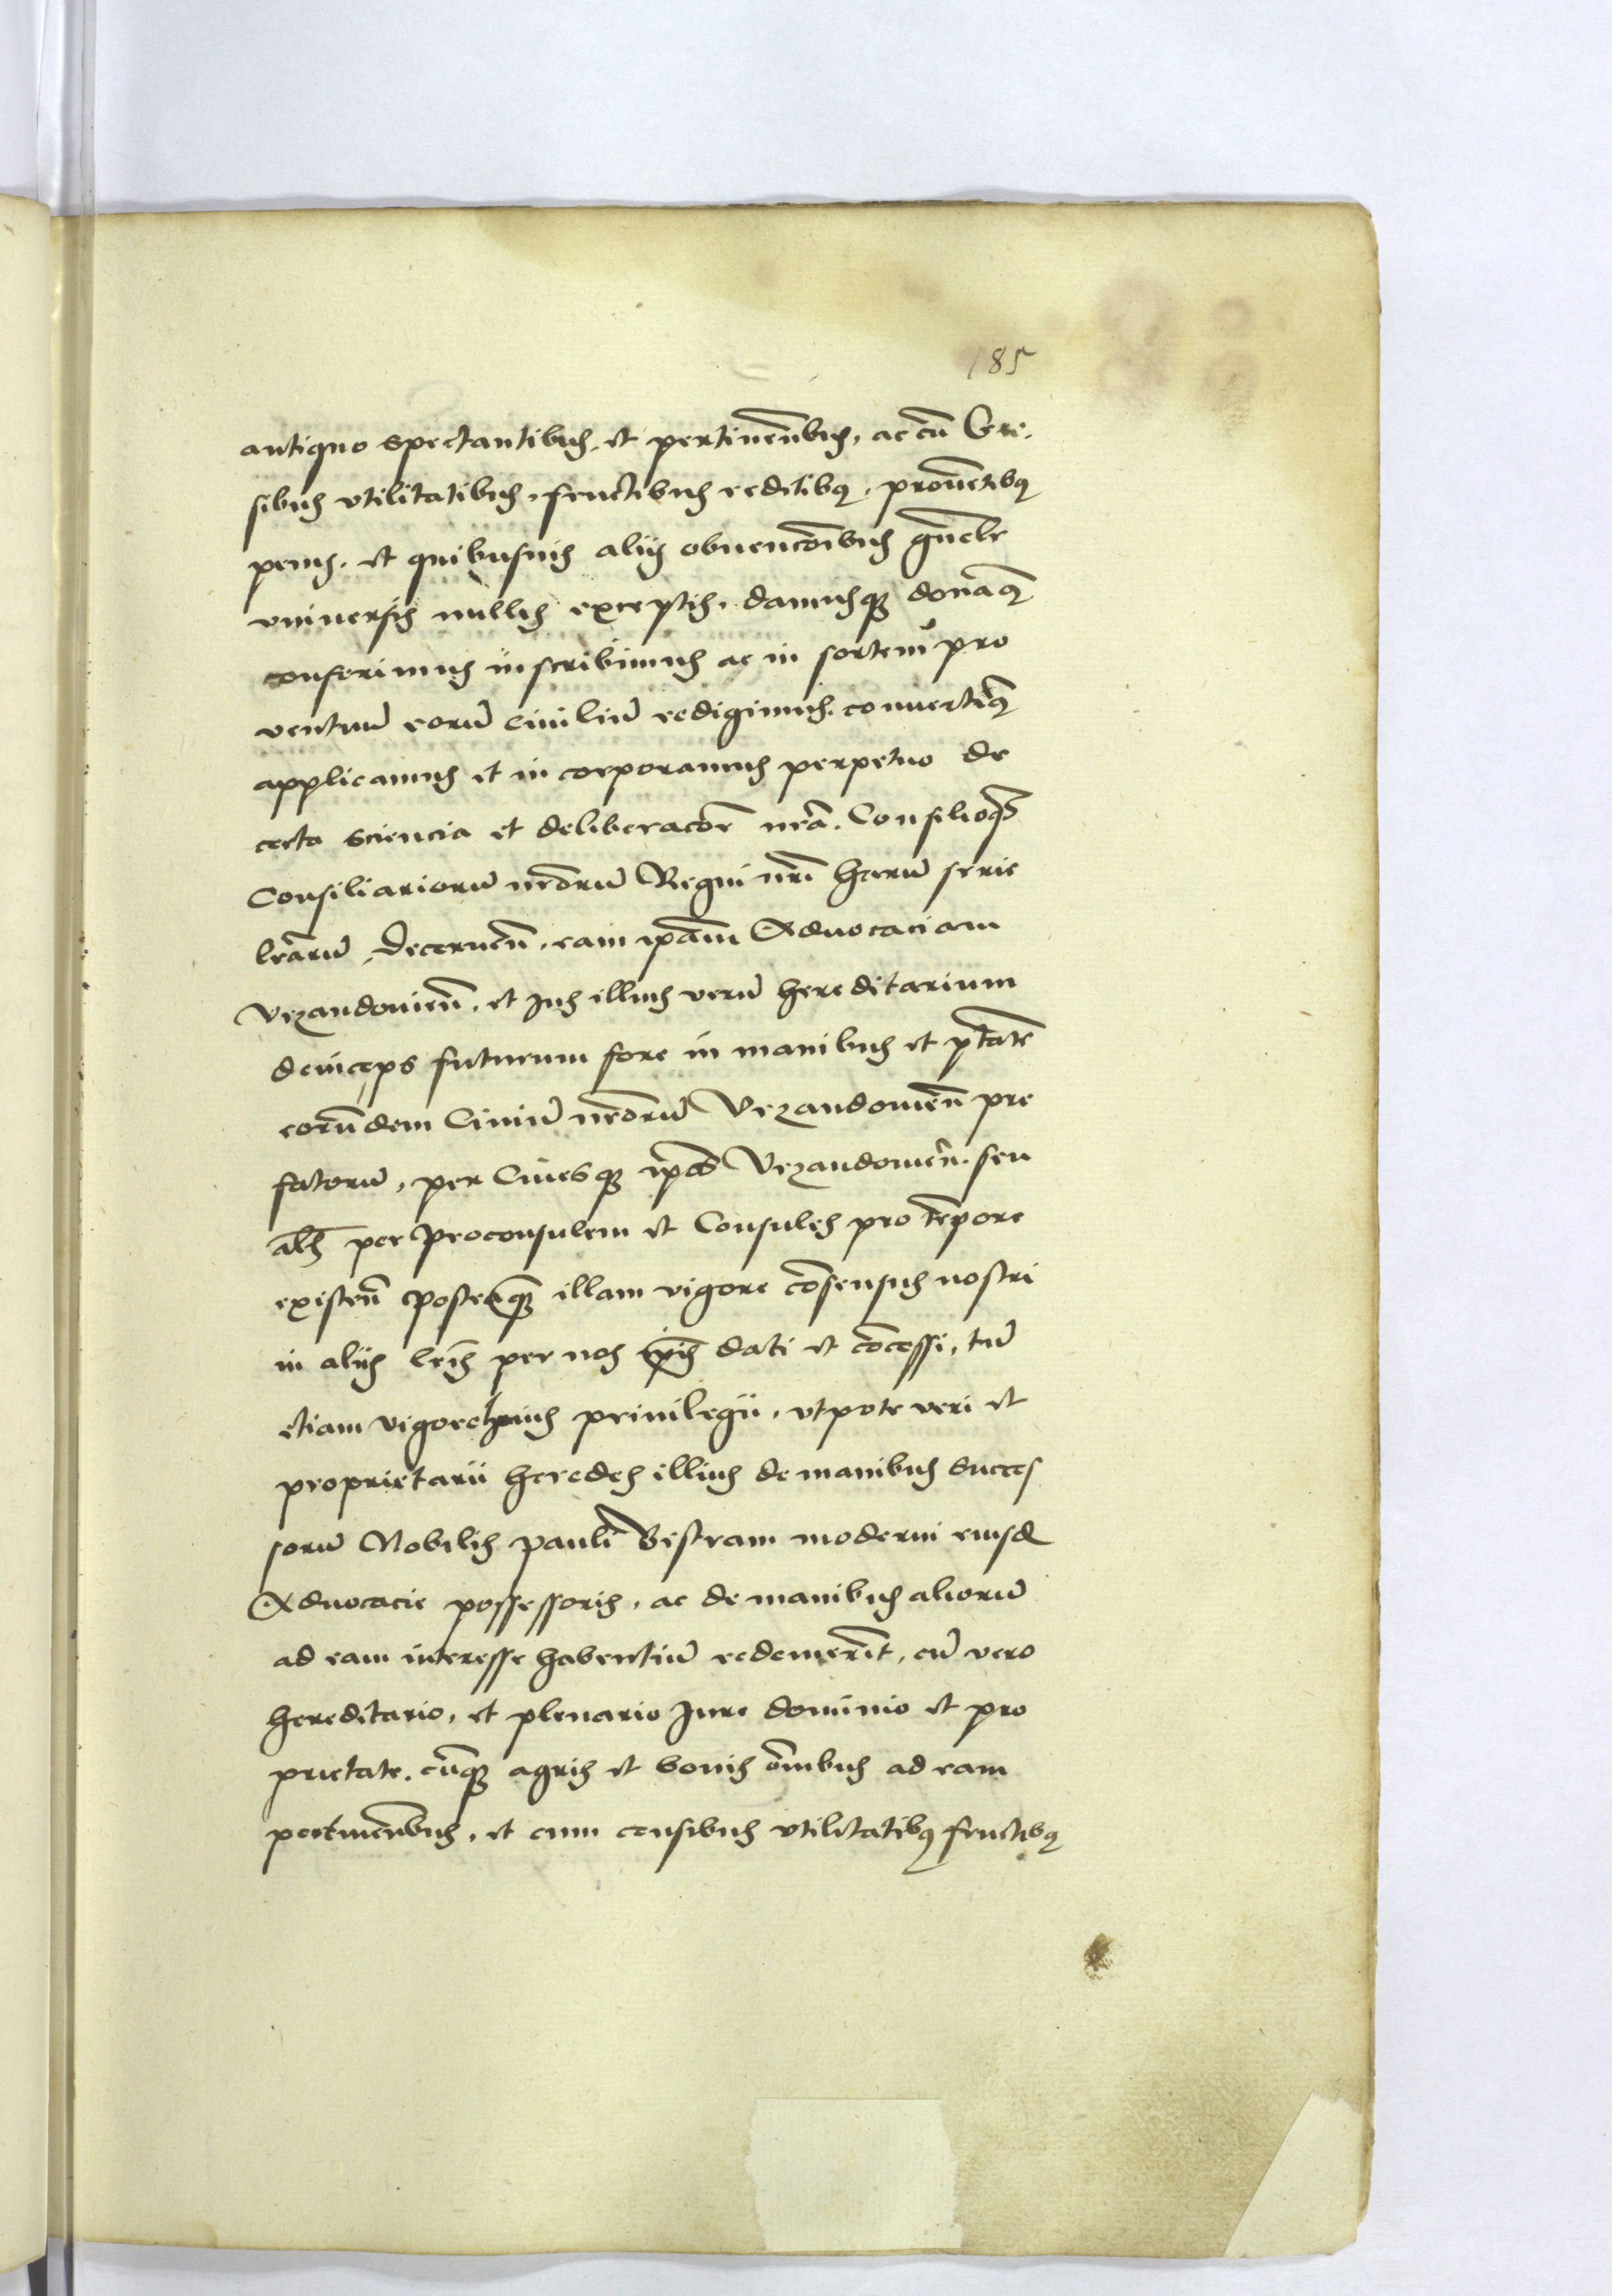 185
antiquo spectantibus, et pertinen̄bus, ac cū Cen-
sibus vtilitatibus, fructibus reditibꝫ, prouētibꝫ
penis, et quibusuis alijs obuencōibus gn̄cle
vniuersis nullis exceptis, damusqꝫ donamꝫ
conferimus inscribimus ac in sortem pro
uentuū eorū ciuiliū redigimus, conuertimꝫ
applicamus et in corporamus perpetuo de
certa sciencia et deliberacōe nr̄a. Consilioqꝫ
Consiliariorū nr̄orū Regni nr̄i harū serie
lr̄arū, Decernen̄, eam ip̄am Aduocaciam
Vyzandouien̄, et Jus illius verū hereditarium
deinceps futurum fore in manibus et p̄tāte
eorūdem Ciuiū nr̄orū Vyzandouien̄ pre
fatorū, per Ciuesqꝫ ip̄os Vyzandouien̄. seu
al̄s per Proconsulem et Consules pro tēpore
existen̄ posteaqꝫ illam vigore cōsensus nostri
in alijs lr̄is per nos ip̄is dati et cōcessi, tū
etiam vigore huius priuilegii, vtpote veri et
proprietarii heredes illius de manibus succes
sorū Nobilis Pauli Bistram moderni eiusd
Aduocacie possessoris, ac de manibus aliorū
ad eam interesse habentiū redemerīt, cū vero
hereditario, et plenario Jure dominio et pro
prietate, cūqꝫ agris et bonis oībus ad eam
pertinen̄bus, et cum censibus vtilitatibꝫ fructibꝫ